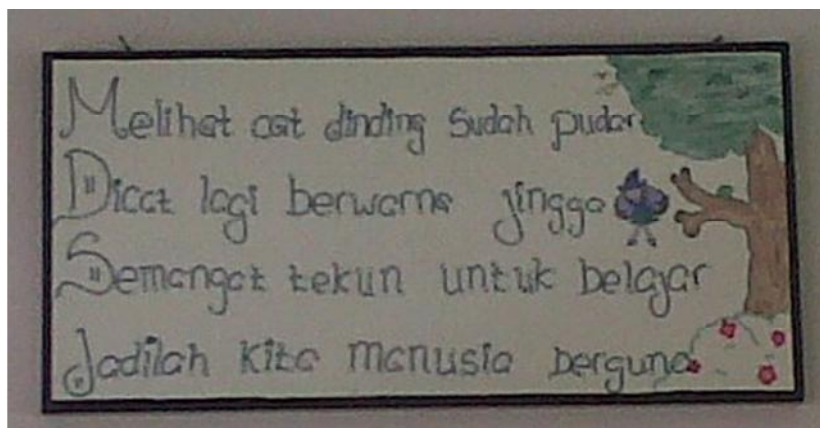 Melihat cat dinding sudah pudar
Dicat lagi berwarna jingga
Semangat tekun untuk belajar
Jadilah kita manusia berguna